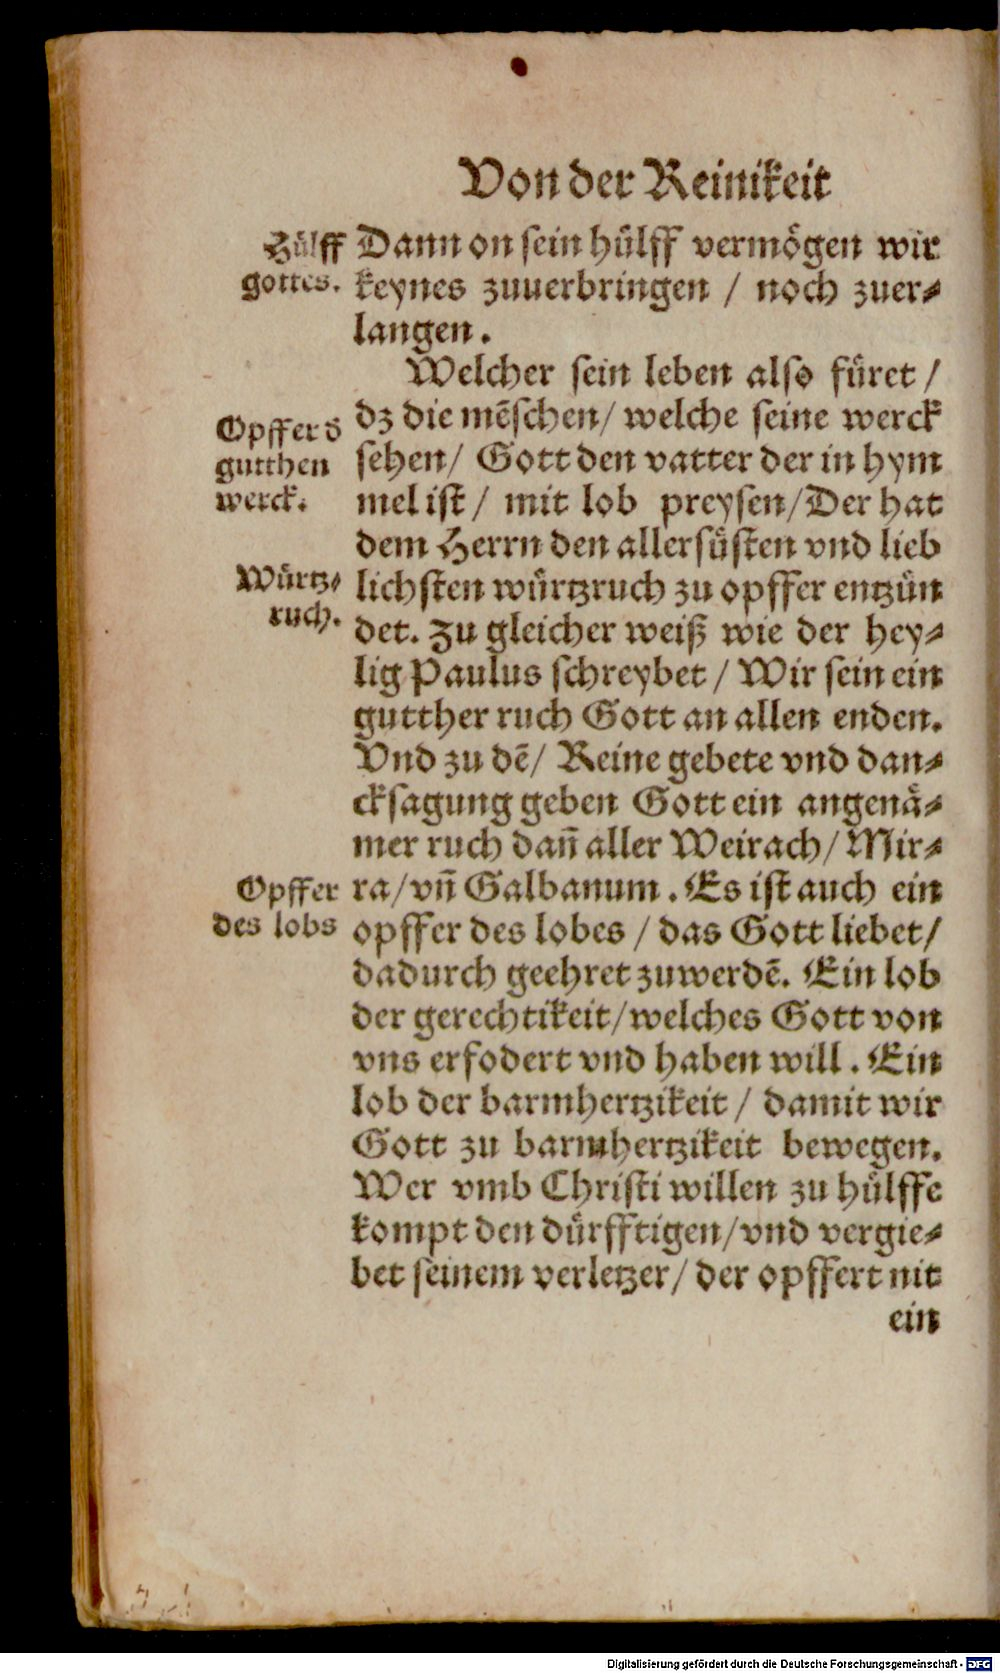 Von der Reinikeit
Hülff
gottes.
Dann on sein hülff vermögen wir
keynes zuuerbringen / noch zuer⸗
langen.
Welcher sein leben also füret /
Opffer d
gutthen
werck.
dz die mẽschen / welche seine werck
sehen / Gott den vatter der in hym
mel ist / mit lob preysen / Der hat
dem Herrn den allersüsten vnd lieb
Würtz⸗
ruch.
lichsten würtzruch zu opffer entzün
det. Zu gleicher weiß wie der hey⸗
lig Paulus schreybet / Wir sein ein
gutther ruch Gott an allen enden.
Vnd zu dẽ / Reine gebete vnd dan⸗
cksagung geben Gott ein angenä⸗
mer ruch dañ aller Weirach / Mir⸗
Opffer
des lobs
ra / vñ Galbanum. Es ist auch ein
opffer des lobes / das Gott liebet /
dadurch geehret zuwerdẽ. Ein lob
der gerechtikeit / welches Gott von
vns erfodert vnd haben will. Ein
lob der barmhertzikeit / damit wir
Gott zu barmhertzikeit bewegen.
Wer vmb Christi willen zu hülffe
kompt den dürfftigen / vnd vergie⸗
bet seinem verletzer / der opffert nit
ein
Digitalisierung gefördert durch die Deutsche Forschungsgemeinschaft - DFG